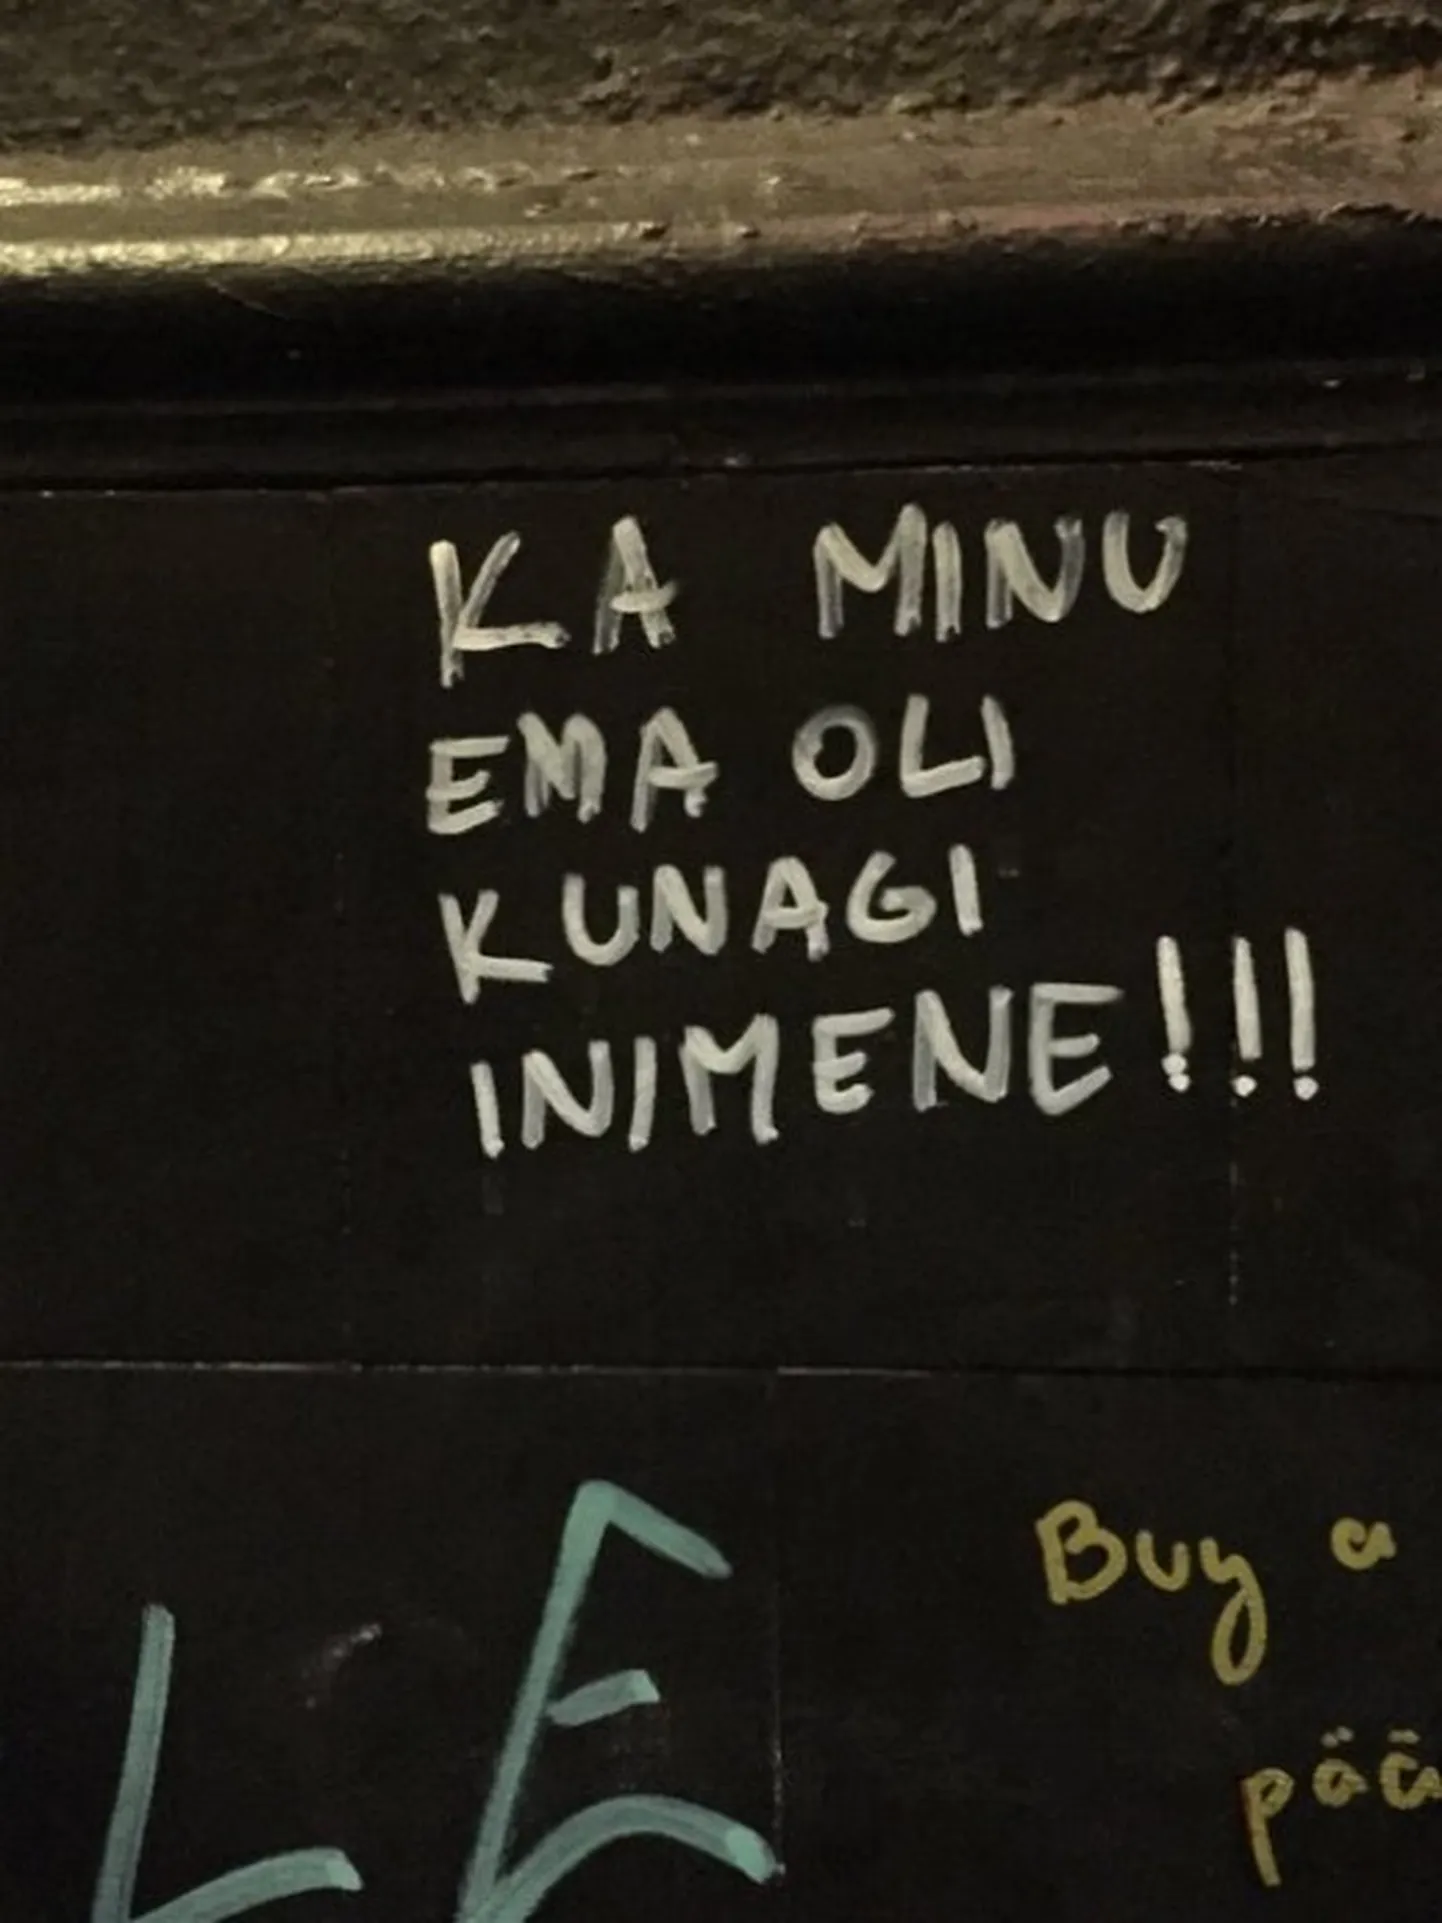 KA MINU
EMA OLI
KUNAGI
INIMENE!!!
LE
Buy a